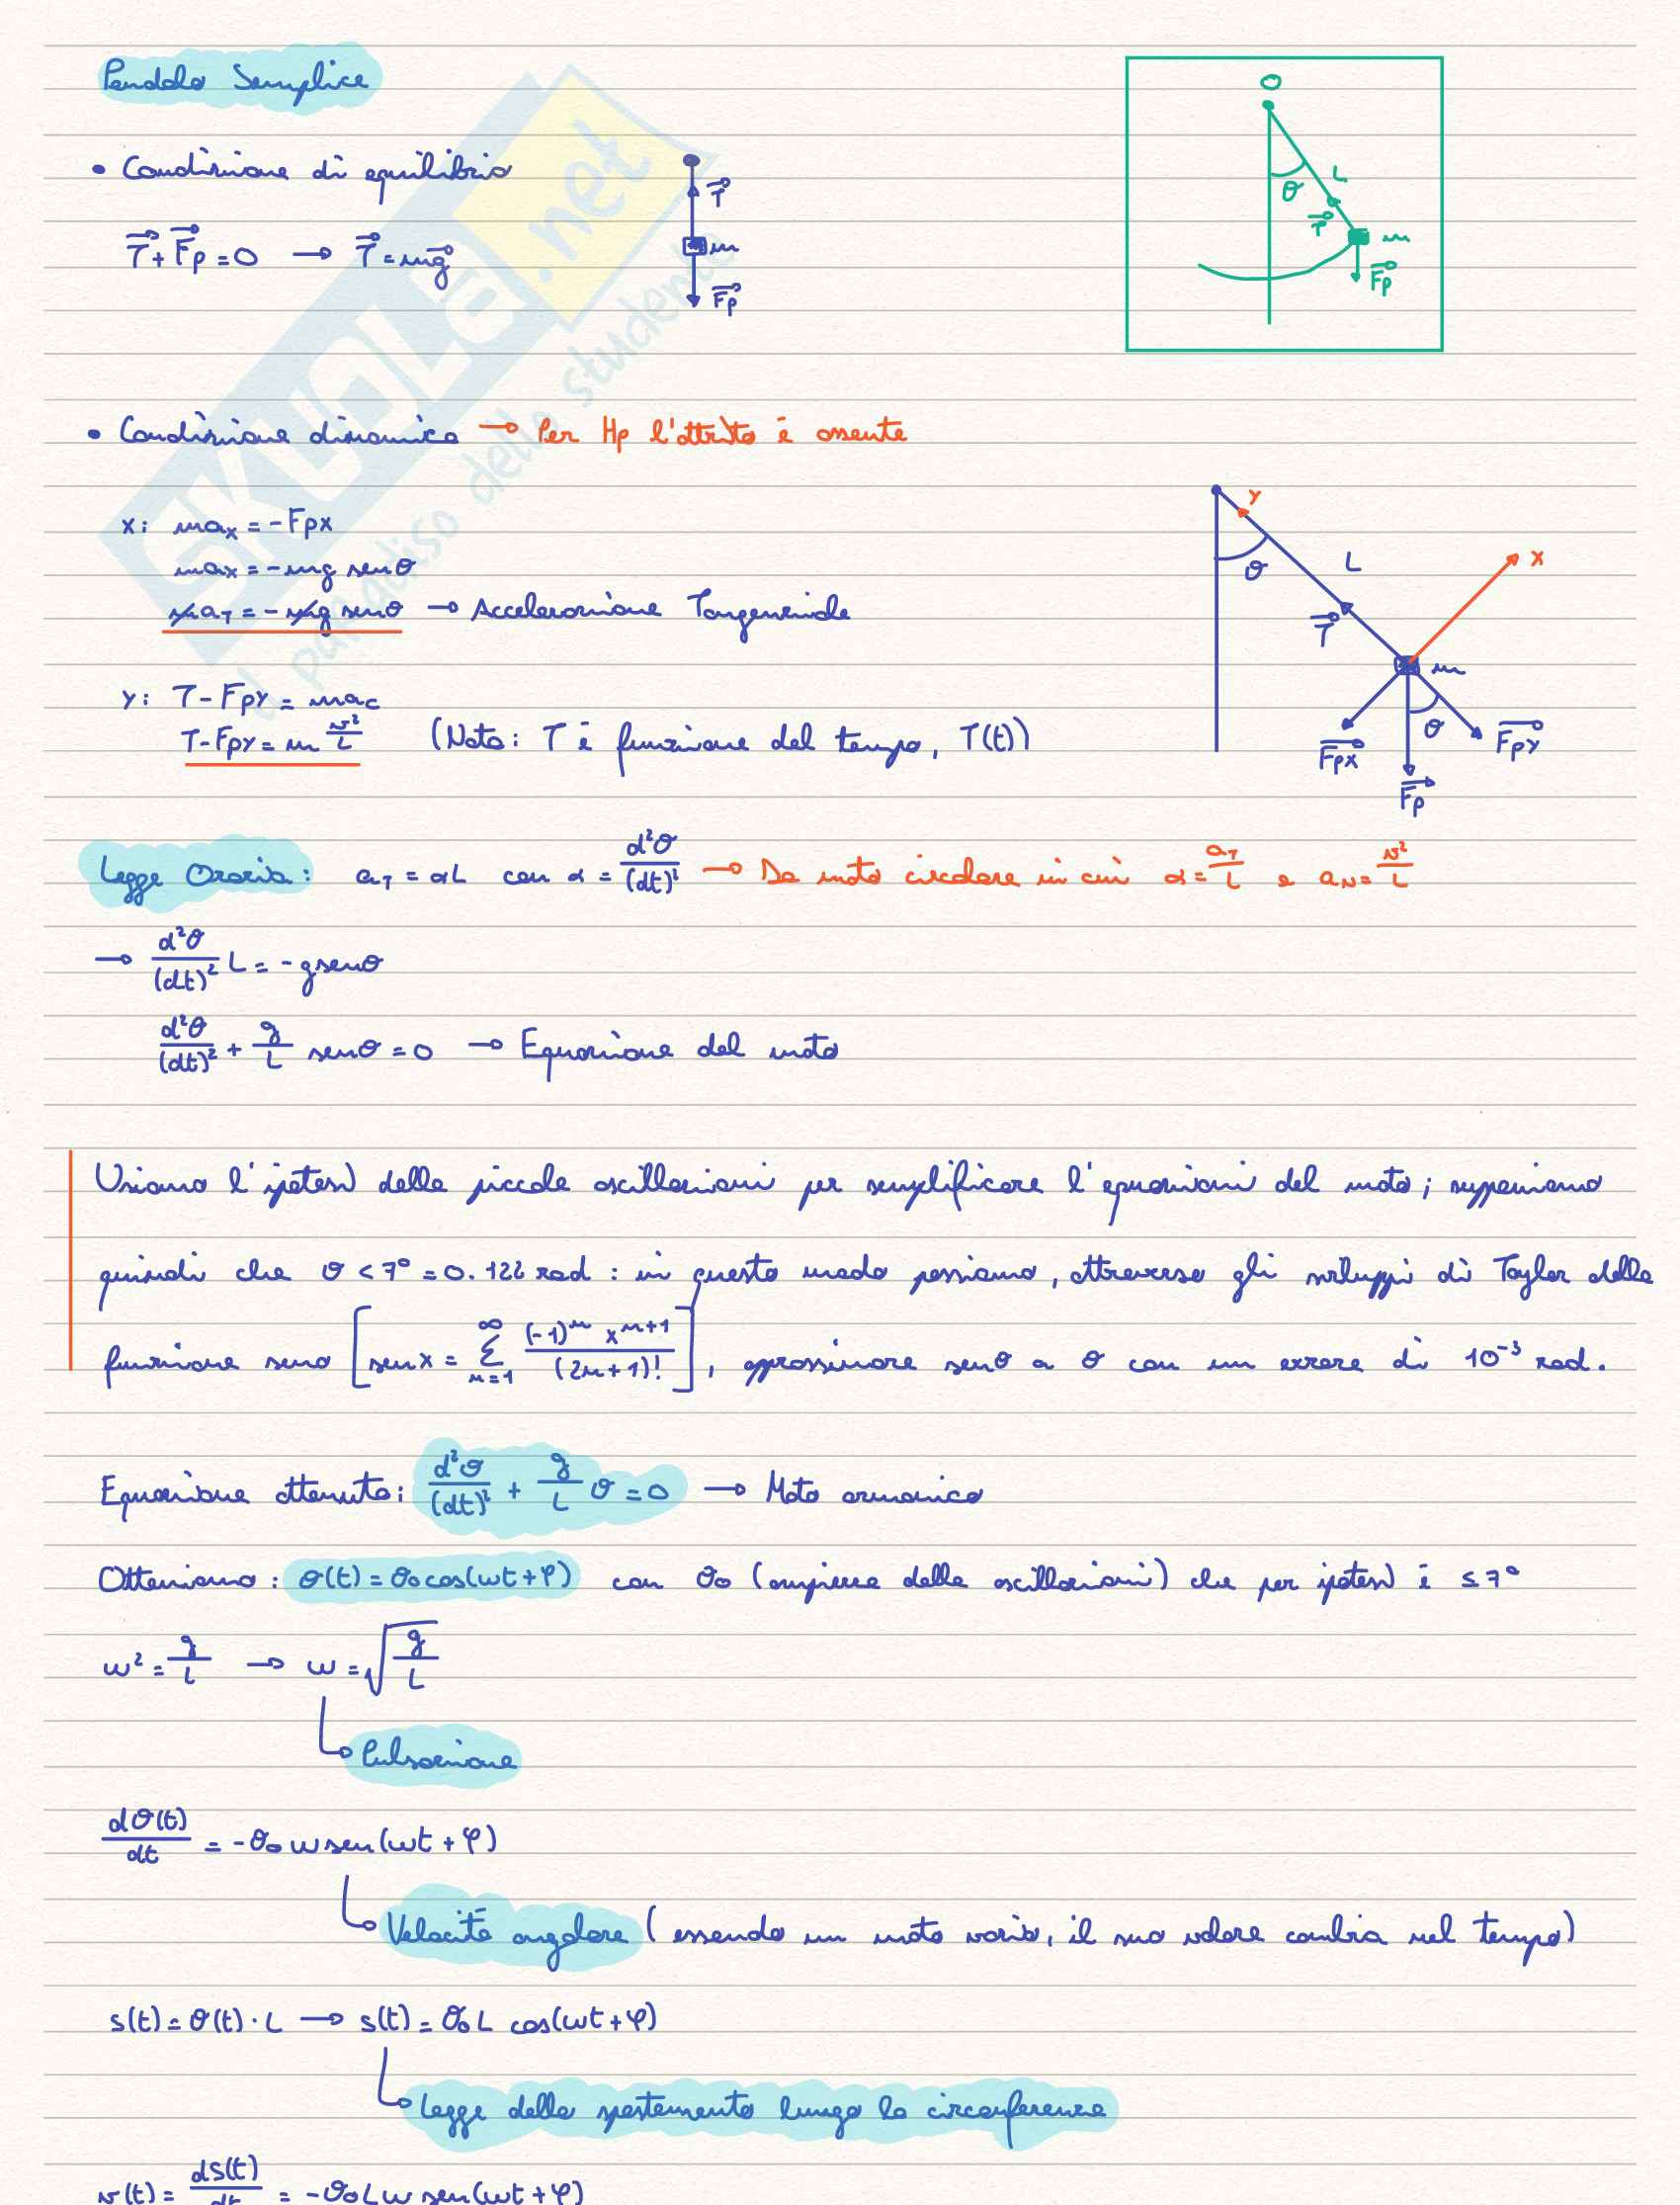 Pendolo Semplice
O
L
θ
T
m
Fp
• Condizione di equilibrio
T
T + Fp = 0 → T = mg
m
Fp
SKUOLA.net
il paradiso dello studente
• Condizione dinamica → Per Hp l'attrito è assente
y
x: max = -Fpx
x
L
θ
max = -mg senθ
maT = -mg senθ → Accelerazione Tangenziale
T
m
y: T - Fpy = mac
T - Fpy = m v²/L (Nota: T è funzione del tempo, T(t))
θ
Fpy
Fpx
Fp
Legge Oraria: aT = αL con α = d²θ/(dt)² → Da moto circolare in cui α = aT/L e aN = v²/L
→ d²θ/(dt)² L = -g senθ
d²θ/(dt)² + g/L senθ = 0 → Equazione del moto
Usiamo l'ipotesi delle piccole oscillazioni per semplificare l'equazioni del moto; supponiamo
quindi che θ < 7° = 0.122 rad : in questo modo possiamo, attraverso gli sviluppi di Taylor della
funzione seno [sen x = Σ n=1 ∞ (-1)ⁿ xⁿ⁺¹/(2n+1)!], approssimare senθ a θ con un errore di 10⁻³ rad.
Equazione ottenuta: d²θ/(dt)² + g/L θ = 0 → Moto armonico
Otteniamo: θ(t) = θ₀ cos(ωt + φ) con θ₀ (ampiezza delle oscillazioni) che per ipotesi è ≤ 7°
ω² = g/L → ω = √(g/L)
Pulsazione
dθ(t)/dt = -θ₀ ω sen(ωt + φ)
Velocità angolare (essendo un moto vario, il suo valore cambia nel tempo)
s(t) = θ(t) · L → s(t) = θ₀ L cos(ωt + φ)
Legge dello spostamento lungo la circonferenza
v(t) = dS(t)/dt = -θ₀ L ω sen(ωt + φ)